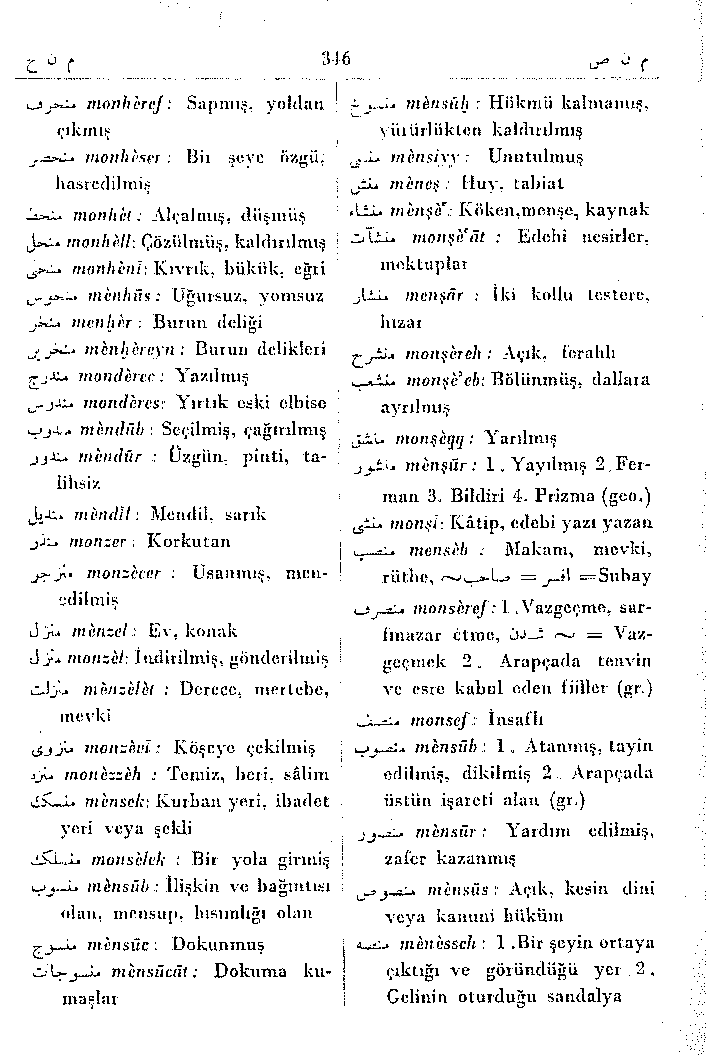 م ن ح 346 م ن ص
منحرف monhèref: Sapmış, yoldan
çıkmış
منحصر monhèser: Bir şeye özgü,
hasredilmiş
منحط monhèt: Alçalmış, düşmüş
منحل monhèll: Çözülmüş, kaldırılmış
منحنى monhènî: Kıvrık, bükük, eğri
منحوس mènhûs: Uğursuz, yomsuz
منخر menḫèr: Burun deliği
منخرين mènḫèreyn: Burun delikleri
مندرج mondèrec: Yazılmış
مندرس mondères: Yırtık eski elbise
مندوب mèndûb: Seçilmiş, çağırılmış
مندور mèndûr : Üzgün, pinti, ta-
lihsiz
منديل mèndîl: Mendil, sarık
منذر monzer: Korkutan
منزجر monzècer : Usanmış, men-
edilmiş
منزل mènzel: Ev, konak
منزل monzèl: İndirilmiş, gönderilmiş
منزلت mènzèlèt : Derece, mertebe,
mevki
منزوى monzèvî: Köşeye çekilmiş
منزه monèzzèh : Temiz, beri, sâlim
منسك mènsek: Kurban yeri, ibadet
yeri veya şekli
منسلك monsèlek : Bir yola girmiş
منسوب mènsûb: İlişkin ve bağıntısı
olan, mensup, hısımlığı olan
منسوج mènsûc: Dokunmuş
منسوجات mènsûcât: Dokuma ku-
maşlar
منسوخ mènsûḫ : Hükmü kalmamış,
yürürlükten kaldırılmış
منسى mènsiyy: Unutulmuş
منش mèneş: Huy, tabiat
منشاء mènşè': Köken,menşe, kaynak
منشآت monşè'ât : Edebi nesirler,
mektuplar
منشار menşâr : İki kollu testere,
hızar
منشرح monşèreh: Açık, ferahlı
منشعب monşè'eb: Bölünmüş, dallara
ayrılmış
منشق monşèqq: Yarılmış
منشور mènşûr: 1. Yayılmış 2.Fer-
man 3. Bildiri 4. Prizma (geo.)
منشى monşî: Kâtip, edebi yazı yazan
منصب mensèb : Makam, mevki,
rütbe, ~صاحب = افسر =Subay
منصرف monsèref:1.Vazgeçme, sar-
fınazar etme, ~ شدن = Vaz-
geçmek 2. Arapçada tenvin
ve esre kabul eden fiiller (gr.)
منصف monsef: İnsaflı
منصوب mènsûb: 1. Atanmış, tayin
edilmiş, dikilmiş 2. Arapçada
üstün işareti alan (gr.)
منصور mènsûr: Yardım edilmiş,
zafer kazanmış
منصوص mènsûs: Açık, kesin dini
veya kanuni hüküm
منصه mènèsseh: 1.Bir şeyin ortaya
çıktığı ve göründüğü yer 2.
Gelinin oturduğu sandalya